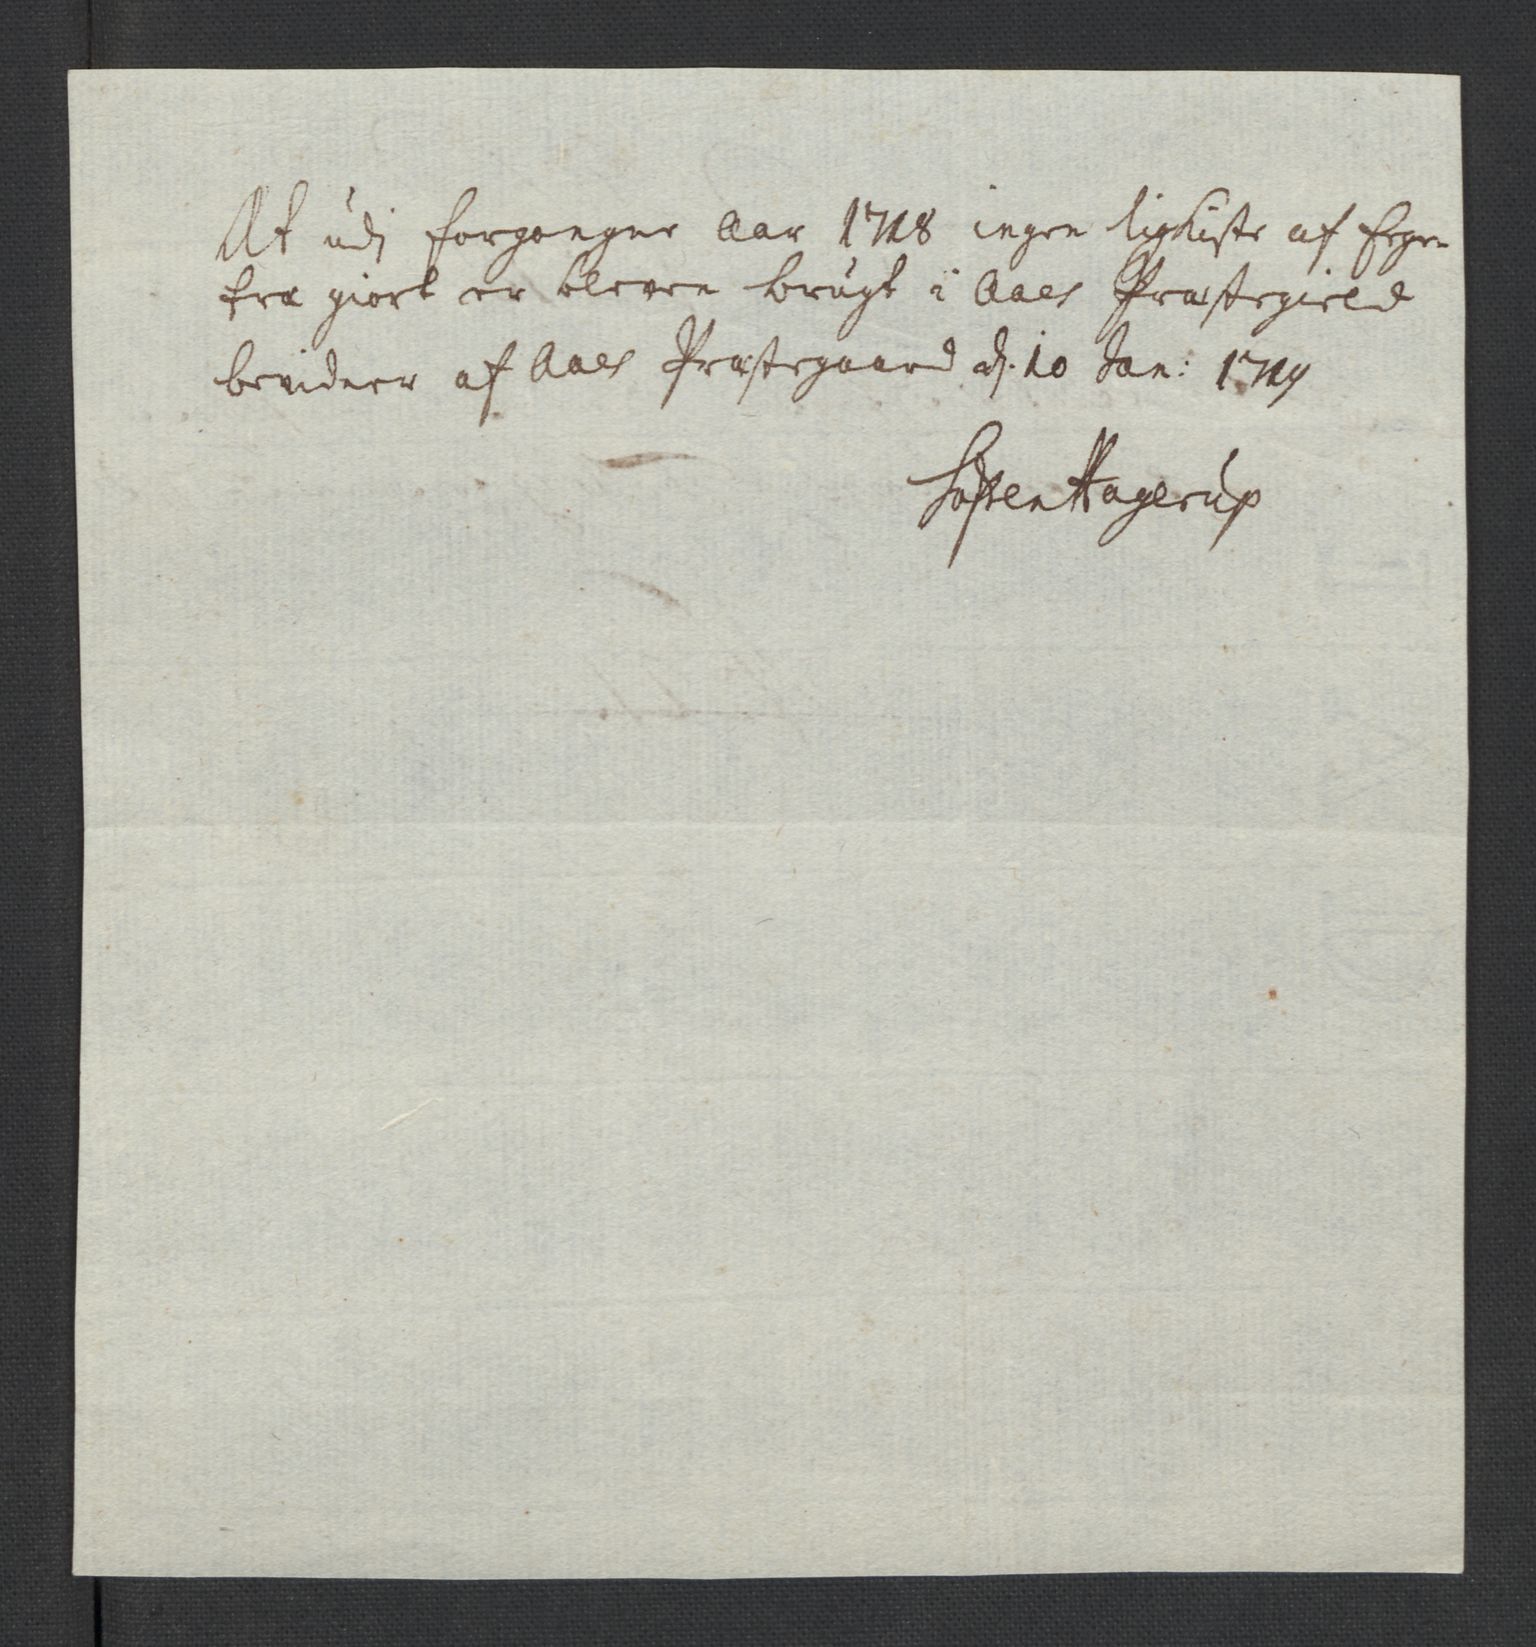 At udj forgangne Aar 1718 ingen ligkiste af Egen
træ giort er bleven brugt i Aaes Præstegield
bevidner af Aaes Præstegaard dj. 10 Jan: 1719
Hagerup